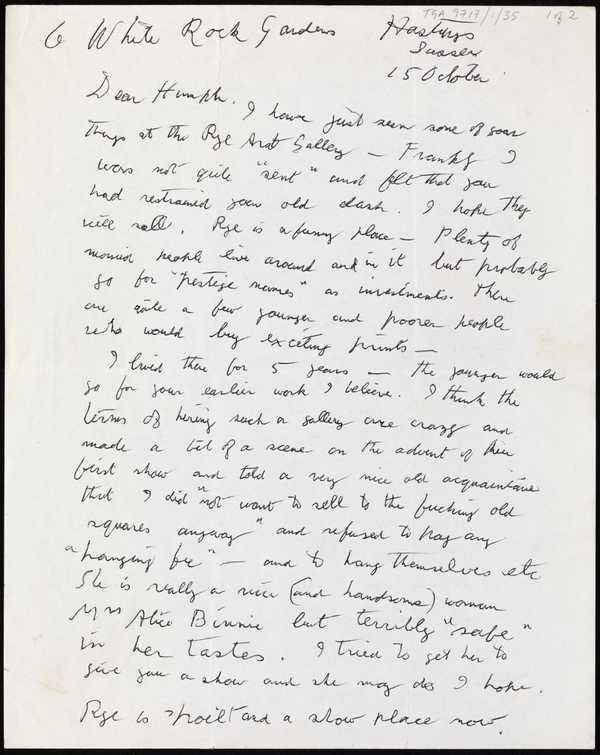 TGA 9717/1/35 1 of 2
6 White Rock Gardens Hastings
Sussex
15 October
Dear Humph. I have just seen some of your
things at the Rye Art Gallery — Frankly I
was not quite "sent" and felt that you
had restrained your old dash. I hope they
will sell. Rye is a funny place — Plenty of
monied people live around and in it but probably
go for "prestige names" as investments. There
are quite a few younger and poorer people
who would buy exciting prints —
I lived there for 5 years — the younger would
go for your earlier work I believe. I think the
terms of hiring such a gallery are crazy and
made a bit of a scene on the advent of their
first show and told a very nice old acquaintance
that I did "not want to sell to the fucking old
squares anyway" and refused to pay any
"hanging fee" — and to hang themselves etc
She is really a nice (and handsome) woman
Mrs Alice Binnie but terribly "safe"
in her tastes. I tried to get her to
give you a show and she may do I hope.
Rye is spoilt and a show place now.